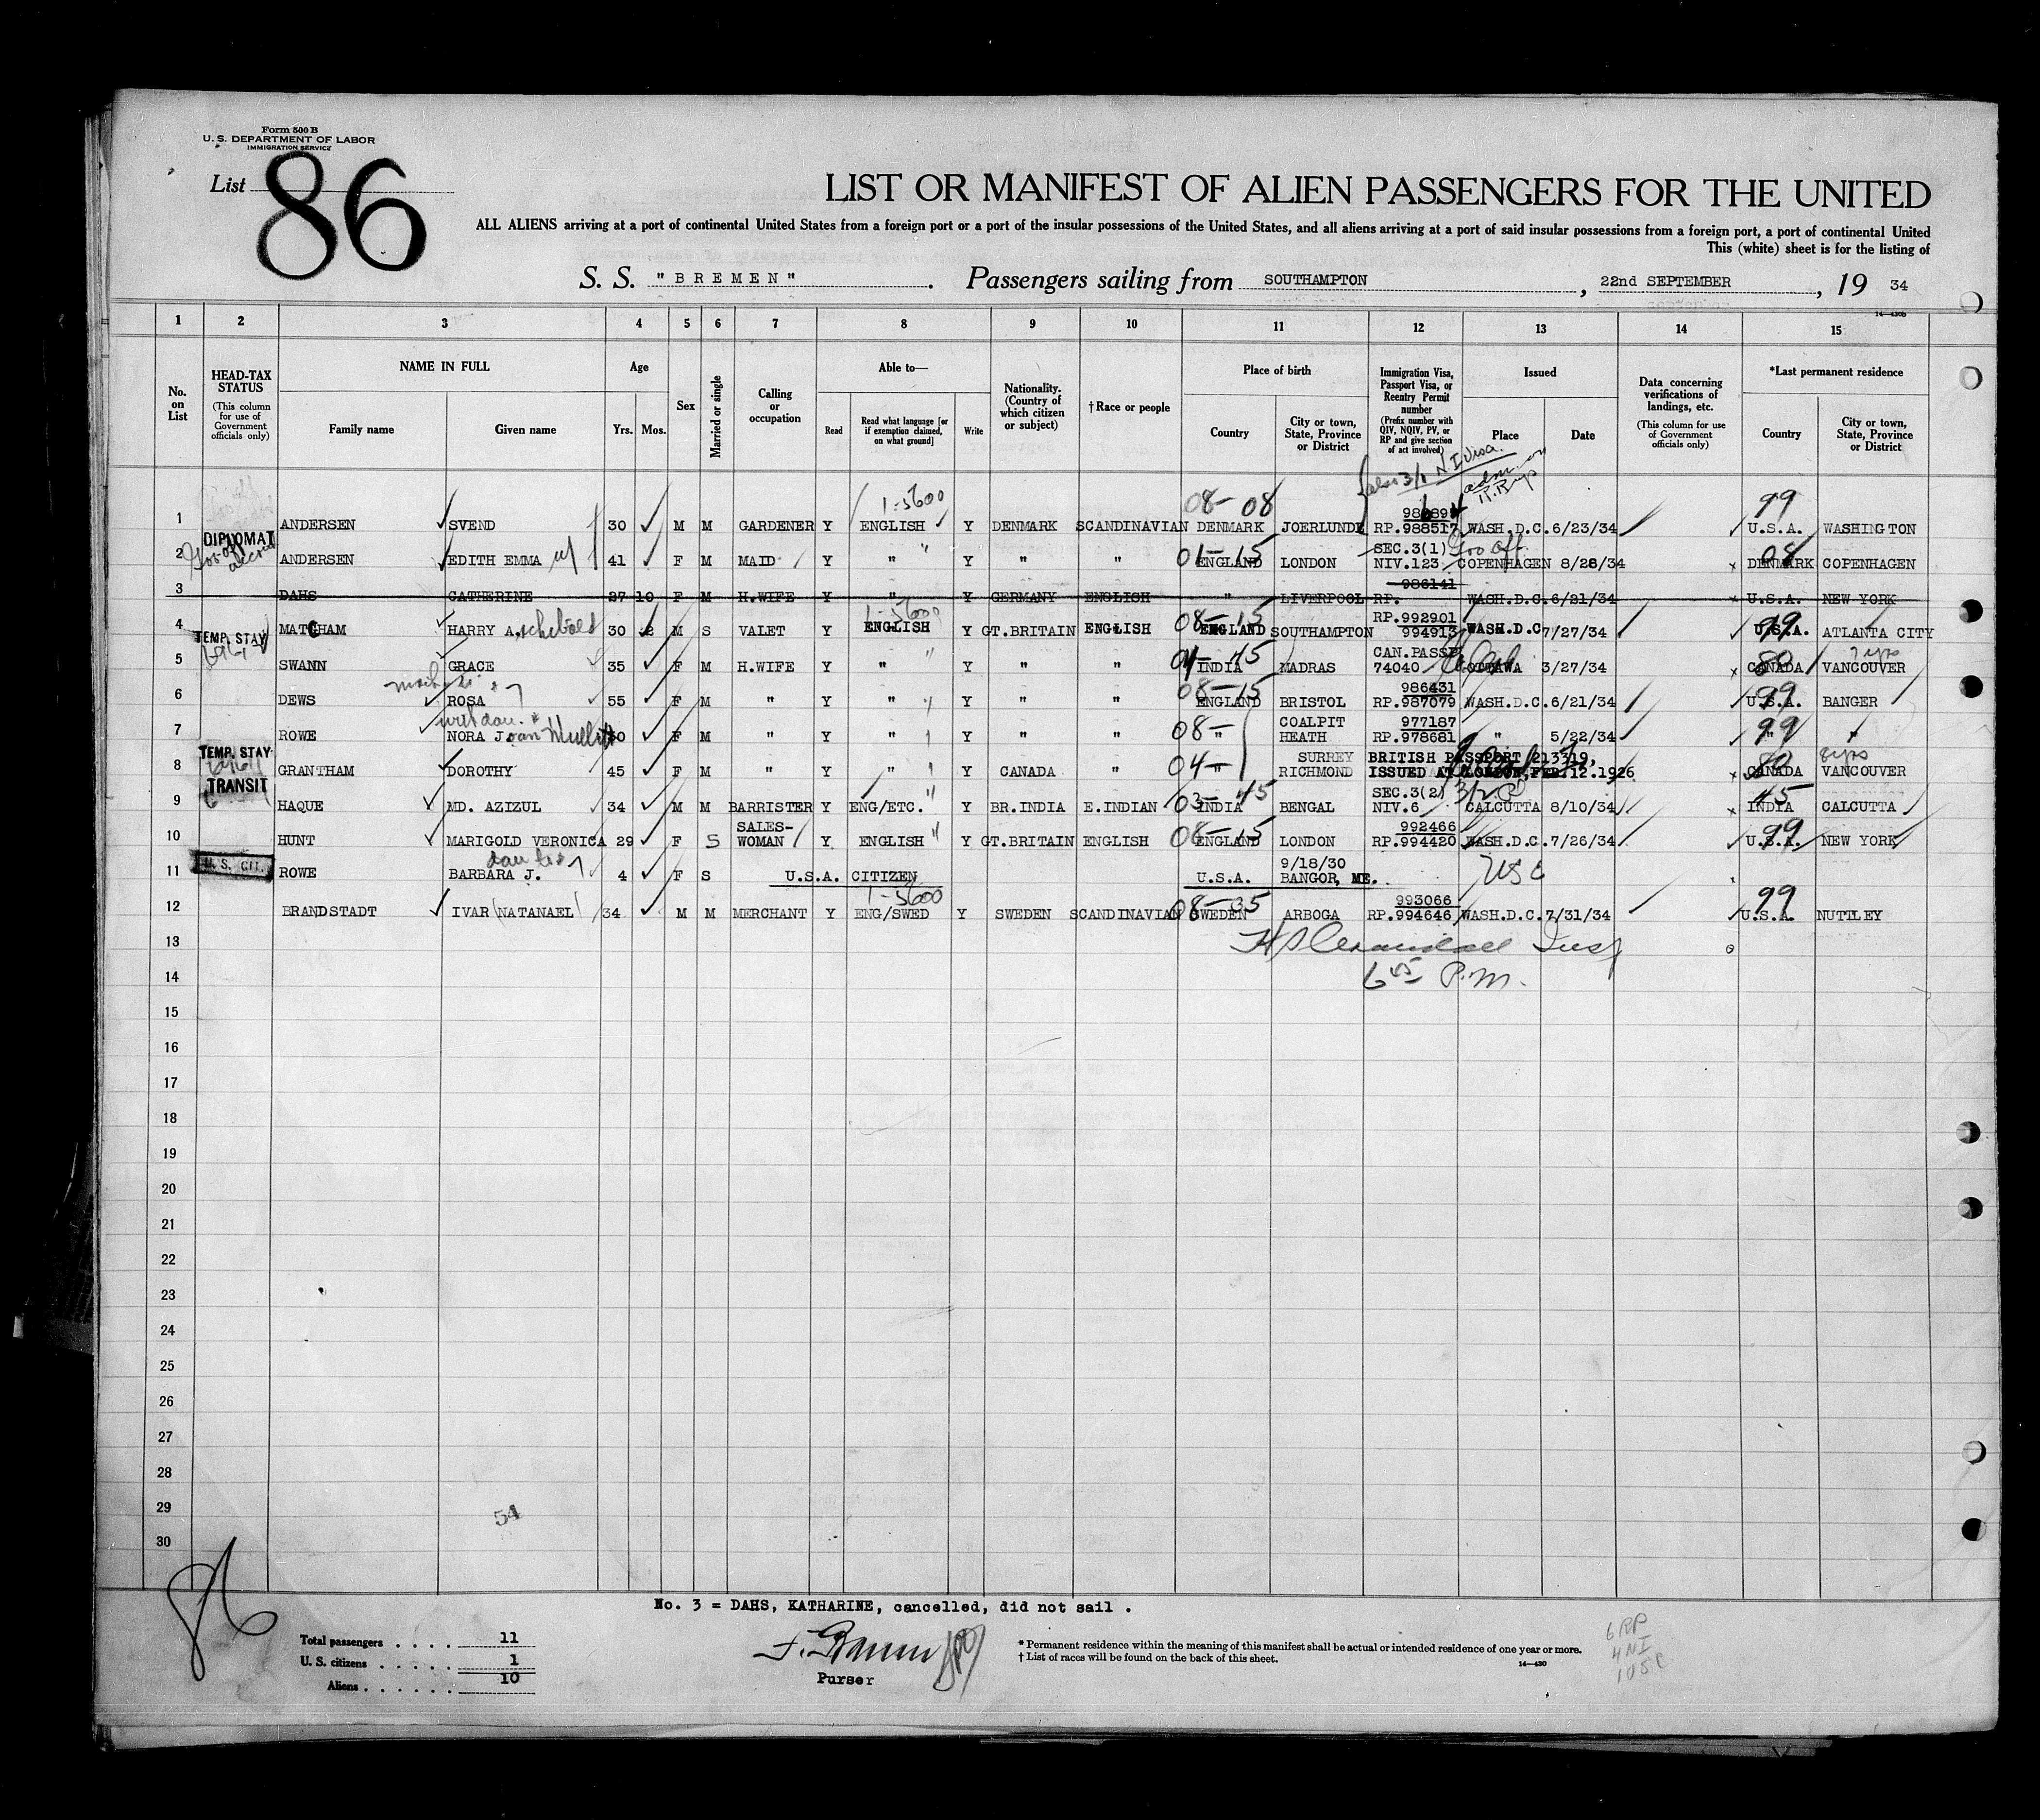 Form 500 B
U. S. DEPARTMENT OF LABOR
IMMIGRATION SERVICE
List 86
LIST OR MANIFEST OF ALIEN PASSENGERS FOR THE UNITED
ALL ALIENS arriving at a port of continental United States from a foreign port or a port of the insular possessions of the United States, and all aliens arriving at a port of said insular possessions from a foreign port, a port of continental United
This (white) sheet is for the listing of
S. S. "BREMEN". Passengers sailing from SOUTHAMPTON, 22nd SEPTEMBER, 19 34
14—430b
1 2 3 4 5 6 7 8 9 10 11 12 13 14 15
No. on List
HEAD-TAX STATUS (This column for use of Government officials only)
NAME IN FULL Family name Given name
Age Yrs. Mos.
Sex
Married or single
Calling or occupation
Able to— Read Read what language [or if exemption claimed, on what ground] Write
Nationality. (Country of which citizen or subject)
†Race or people
Place of birth Country City or town, State, Province or District
Immigration Visa, Passport Visa, or Reentry Permit number (Prefix number with QIV, NQIV, PV, or RP and give section of act involved)
Issued Place Date
Data concerning verifications of landings, etc. (This column for use of Government officials only)
*Last permanent residence Country City or town, State, Province or District
1-5600 08-08 99
1 ANDERSEN SVEND 30 M M GARDENER Y ENGLISH Y DENMARK SCANDINAVIAN DENMARK JOERLUNDE RP.988517 WASH.D.C. 6/23/34 U.S.A. WASHINGTON
DIPLOMAT
SEC.3(1)
2 ANDERSEN EDITH EMMA 41 F M MAID Y " Y " " 01-15 ENGLAND LONDON NIV.123 COPENHAGEN 8/28/34 08 DENMARK COPENHAGEN
986141
3 DAHS CATHERINE 27 10 F M H.WIFE Y " Y GERMANY ENGLISH " LIVERPOOL RP. WASH.D.C. 6/21/34 U.S.A. NEW YORK
1-5600 RP.992901
4 MATCHAM HARRY A. 30 2 M S VALET Y ENGLISH Y GT.BRITAIN ENGLISH 08-15 ENGLAND SOUTHAMPTON 994913 WASH.D.C 7/27/34 99 U.S.A. ATLANTA CITY
TEMP. STAY
CAN.PASSP
5 SWANN GRACE 35 F M H.WIFE Y " Y " " 04-45 INDIA MADRAS 74040 OTTAWA 3/27/34 80 CANADA VANCOUVER
986431
6 DEWS ROSA 55 F M " Y " Y " " 08-15 ENGLAND BRISTOL RP.987079 WASH.D.C. 6/21/34 99 U.S.A. BANGER
COALPIT 977187
7 ROWE NORA J. F M " Y " Y " " 08- " HEATH RP.978681 " 5/22/34 99 " "
TEMP. STAY
SURREY BRITISH PASSPORT 213719,
8 GRANTHAM DOROTHY 45 F M " Y " Y CANADA " 04- " RICHMOND ISSUED AT LONDON, FEB.12.1926 80 CANADA VANCOUVER
TRANSIT
SEC.3(2)
9 HAQUE MD. AZIZUL 34 M M BARRISTER Y ENG/ETC. " Y BR.INDIA E.INDIAN 03-45 INDIA BENGAL NIV.6 CALCUTTA 8/10/34 45 INDIA CALCUTTA
SALES- 992466
10 HUNT MARIGOLD VERONICA 29 F S WOMAN Y ENGLISH " Y GT.BRITAIN ENGLISH 08-15 ENGLAND LONDON RP.994420 WASH.D.C. 7/26/34 99 U.S.A. NEW YORK
U. S. CIT. 9/18/30
11 ROWE BARBARA J. 4 F S U.S.A. CITIZEN U.S.A. BANGOR, ME. USC
1-5600 993066
12 BRANDSTADT IVAR NATANAEL 34 M M MERCHANT Y ENG/SWED Y SWEDEN SCANDINAVIAN 08-35 SWEDEN ARBOGA RP.994646 WASH.D.C. 7/31/34 99 U.S.A. NUTLEY
13
14 6 45 P.M.
15
16
17
18
19
20
21
22
23
24
25
26
27
28
29 54
30
86
No. 3 = DAHS, KATHARINE, cancelled, did not sail .
Total passengers . . . . 11
U. S. citizens . . . . . 1
Aliens . . . . . . 10
Purser
* Permanent residence within the meaning of this manifest shall be actual or intended residence of one year or more.
† List of races will be found on the back of this sheet.
14—430
6 RP
4 NI
1 USC